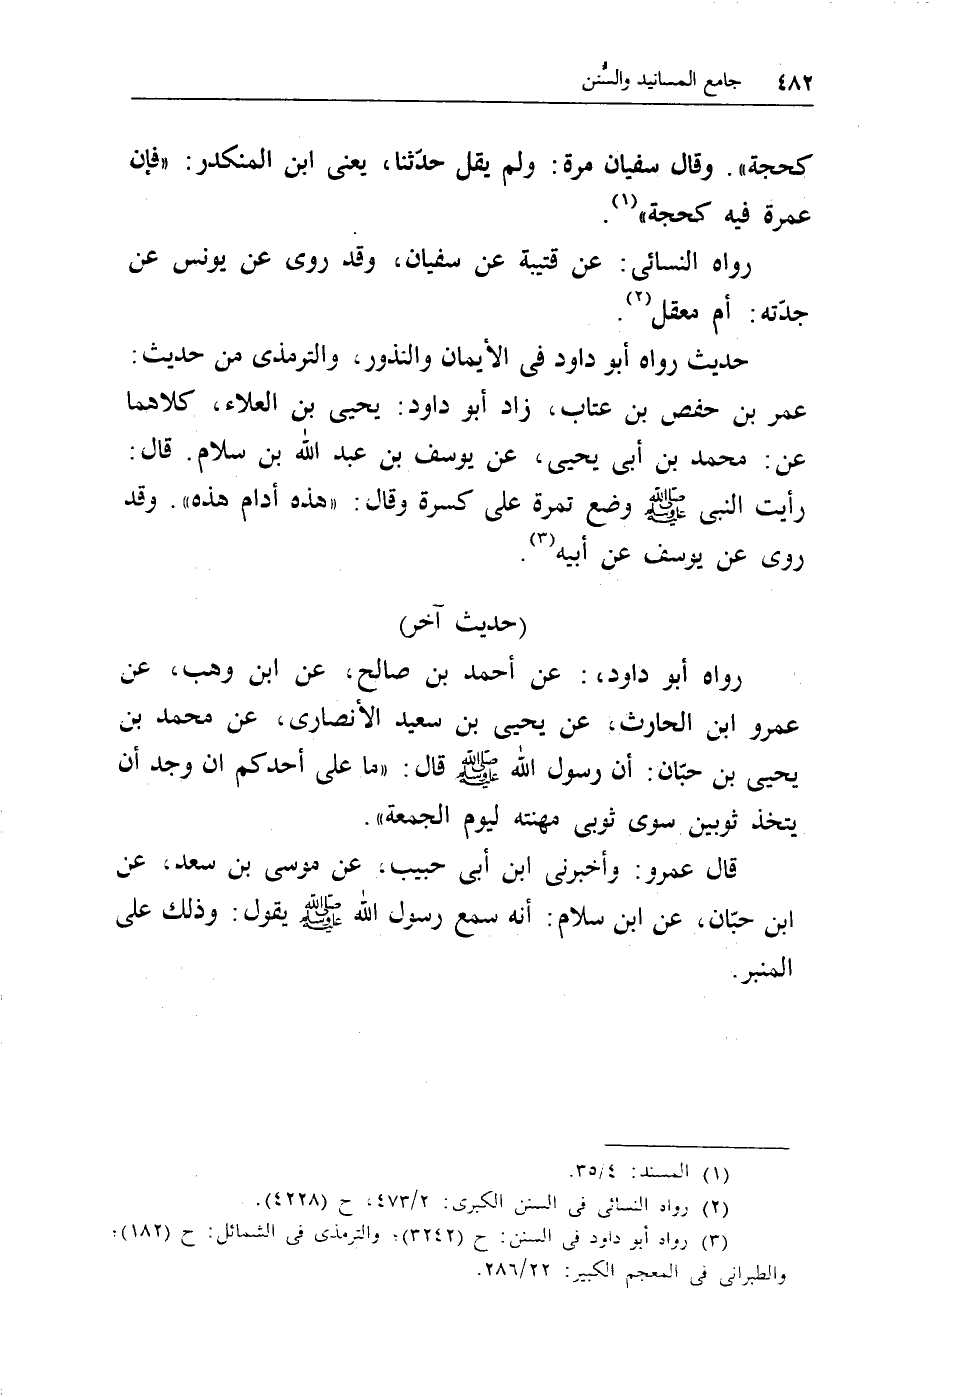 ٤٨٢ جامع المسانيد والسُّنن
كحجة». وقال سفيان مرة: ولم يقل حدّثنا، يعنى ابن المنكدر: «فإن
عمرة فيه كحجة»(١).
رواه النسائى: عن قتيبة عن سفيان، وقد روى عن يونس عن
جدّته: أم معقل(٢).
حديث رواه أبو داود فى الأيمان والنذور، والترمذى من حديث:
عمر بن حفص بن عتاب، زاد أبو داود: يحيى بن العلاء، كلاهما
عن: محمد بن أبى يحيى، عن يوسف بن عبد الله بن سلام. قال:
رأيت النبى ﷺ وضع تمرة على كسرة وقال: «هذه أدام هذه». وقد
روى عن يوسف عن أبيه(٣).
(حديث آخر)
رواه أبو داود،: عن أحمد بن صالح، عن ابن وهب، عن
عمرو ابن الحارث، عن يحيى بن سعيد الأنصارى، عن محمد بن
يحيى بن حبّان: أن رسول الله ﷺ قال: «ما على أحدكم ان وجد أن
يتخذ ثوبين سوى ثوبى مهنته ليوم الجمعة».
قال عمرو: وأخبرنى ابن أبى حبيب، عن موسى بن سعد، عن
ابن حبّان، عن ابن سلام: أنه سمع رسول الله ﷺ يقول: وذلك على
المنبر.
(١) المسند: ٣٥/٤.
(٢) رواه النسائى فى السنن الكبرى: ٤٧٣/٢، ح (٤٢٢٨).
(٣) رواه أبو داود فى السنن: ح (٣٢٤٢)؛ والترمذى فى الشمائل: ح (١٨٢)؛
والطبرانى فى المعجم الكبير: ٢٨٦/٢٢.